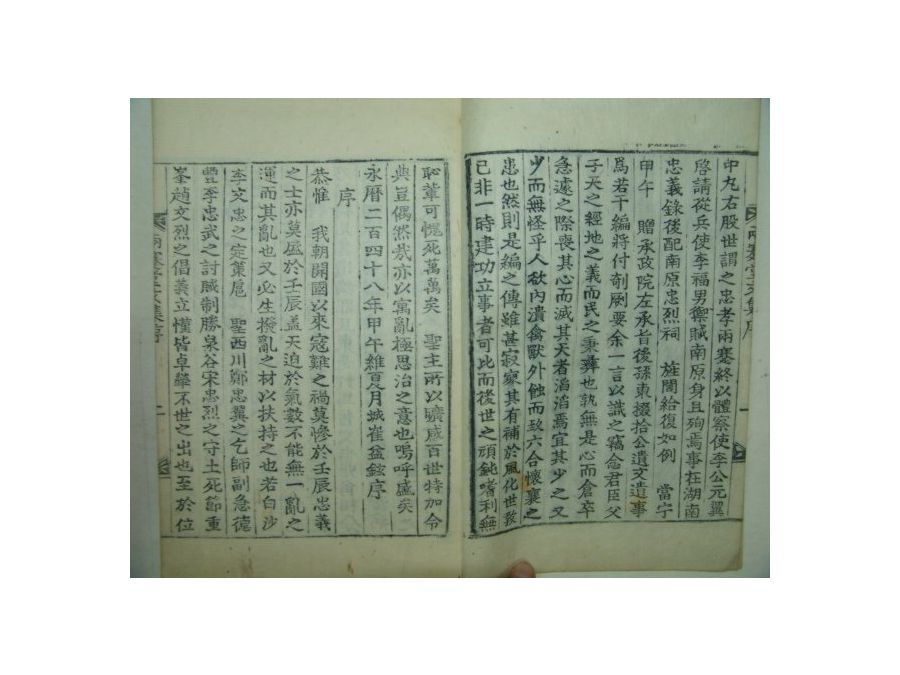 中丸右股世謂之忠孝兩蹇終以體察使李公元翼
啓請從兵使李福男禦賊南原身且殉焉事在湖南
忠義錄後配南原忠烈祠 旌閭給復如例 當宁
甲午 贈承政院左承旨後孫東掇拾公遺文遺事
爲若干編將付剞劂要余一言以識之竊念君臣父
子天之經地之義而民之秉彛也孰無是心而倉卒
急遽之際喪其心而滅其天者滔滔焉宜其少之又
少而無怪乎人欲內潰禽獸外蝕而致六合懷襄之
患也然則是編之傳雖甚寂寥其有補於風化世敎
已非一時建功立事者可比而後世之頑鈍嗜利無
兩蹇堂文集序
一
恥輩可愧死萬萬矣 聖主所以曠感百世特加令
典豈偶然哉亦以寓亂極思治之意也嗚呼盛矣
永曆二百四十八年甲午維夏月城崔益鉉序
序
恭惟 我朝開國以來寇難之禍莫慘於壬辰忠義
之士亦莫盛於壬辰盖天迫於氣數不能無一亂之
運而其亂也又必生撥亂之材以扶持之也若白沙
李文忠之定策扈 聖西川鄭忠翼之乞師副急德
豐李忠武之討賊制勝泉谷宋忠烈之守土死節重
峯趙文烈之倡義立慬皆卓犖不世之出也至於位
兩蹇堂文集序
二